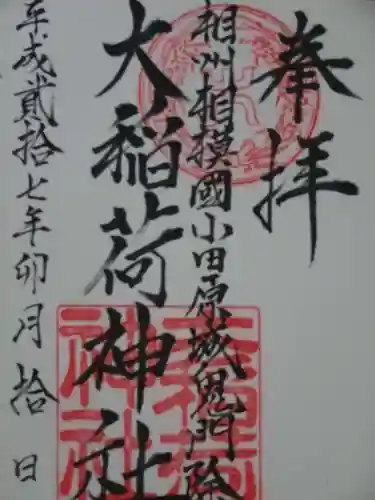 奉拝
相州相模國小田原城鬼門除
大稲荷神社
平成貳拾七年卯月拾日